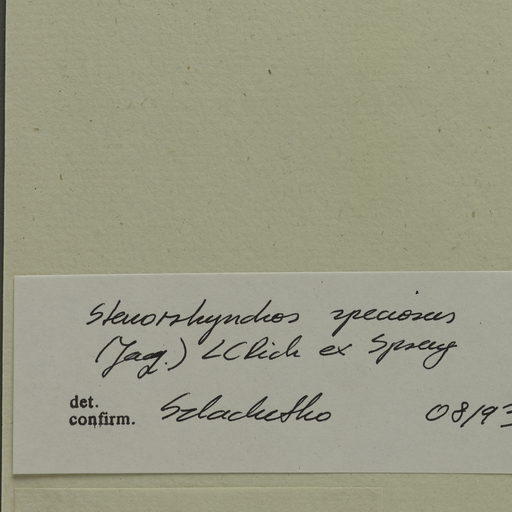 Stenorrhynchos speciosus
(Jacq.) LCRich ex Spreng
det.
confirm. Szlachetko 08/93